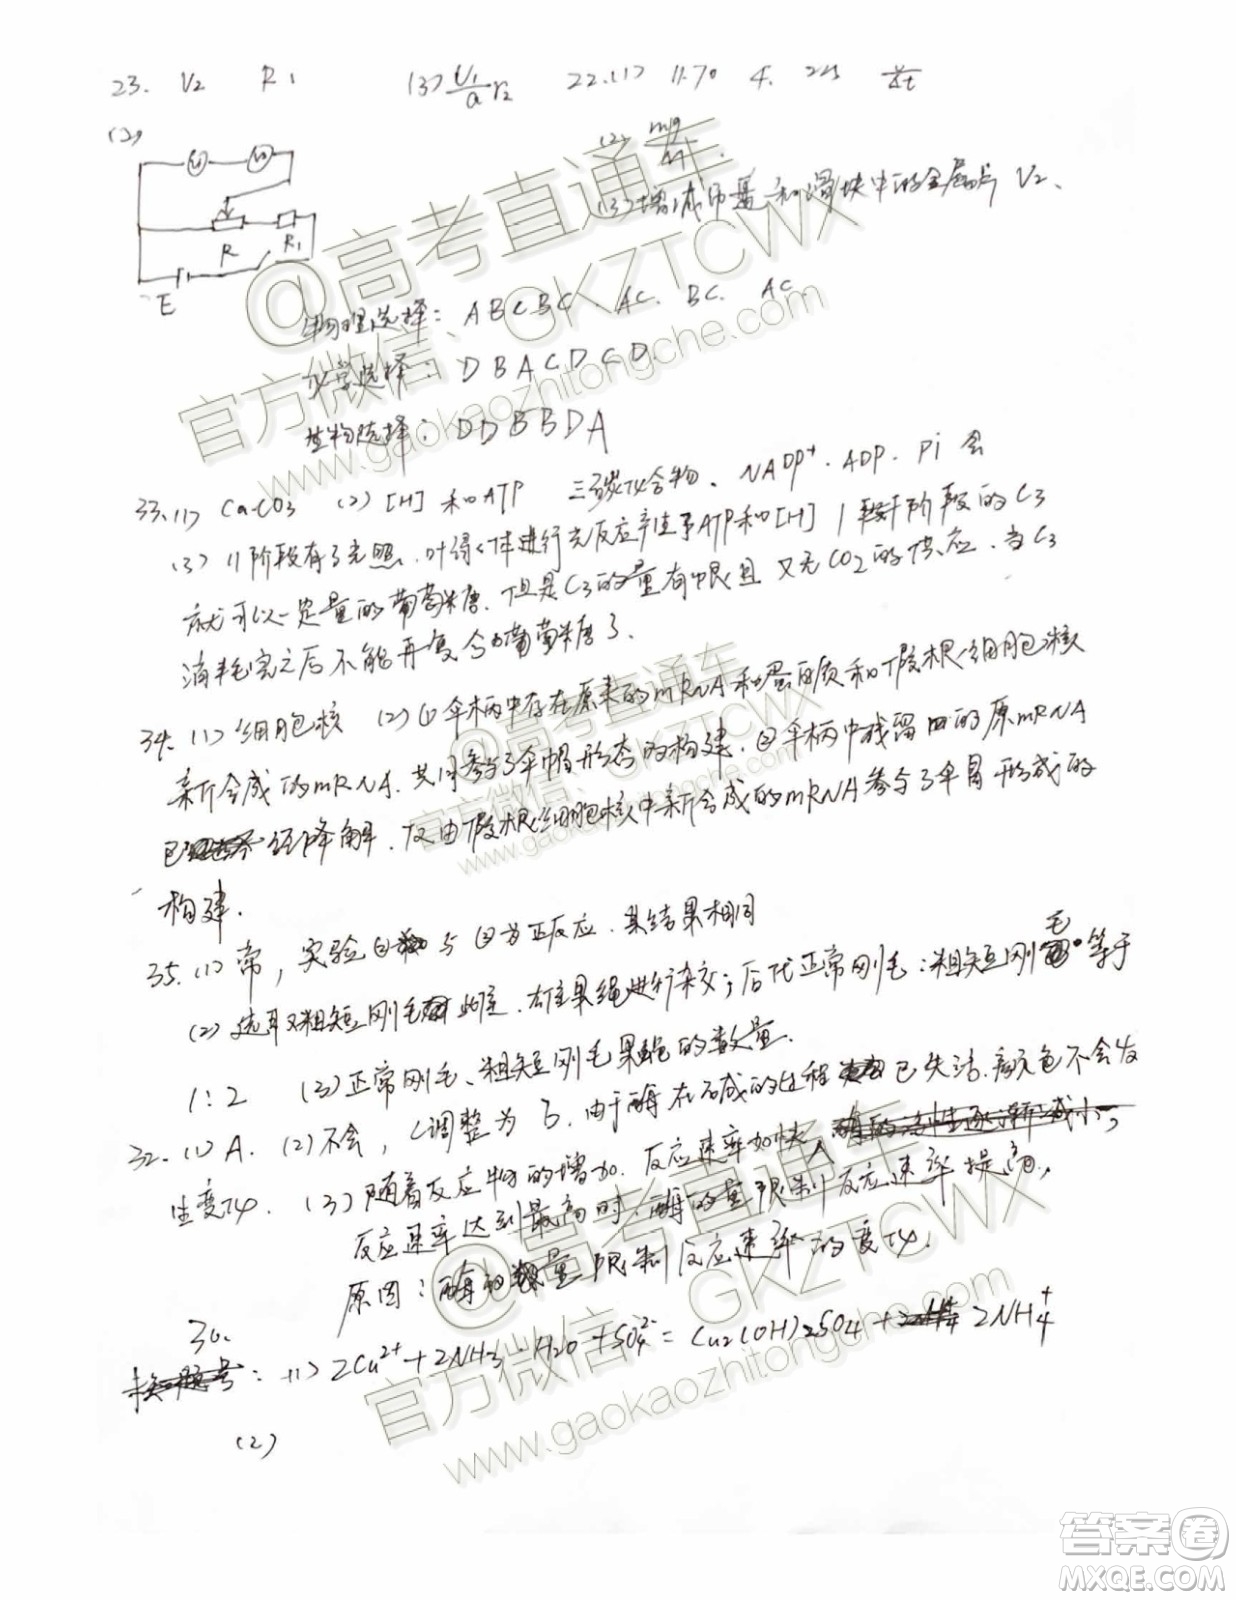 23. V₂ R₁ (3) U₁/a r₂ 22.(1) 11.70 4.
(2)
(2) mg/M
R R₁
E
(3)增减 和滑块中的 V₂
物理选择: ABCBC AC. BC. AC.
化学选择: DBACDCD.
生物选择: DDBBDA
33.(1) CaCO3 (2) [H] 和ATP 三碳化合物、NADP⁺. ADP. Pi
(3) 阶段有了光照, 进行光反应产生了ATP和[H] 阶段的C3
就可以 定量的葡萄糖. 但是C3的量有限且又无CO2的供应. 当C3
消耗完之后不能再 葡萄糖了.
34.(1)细胞核 (2)①伞柄中存在原来的mRNA和蛋白质和假根细胞核
新合成的mRNA. 共同参与了伞帽形态的构建. ②伞柄中残留 的原mRNA
已 经降解, 仅由假根细胞核中新合成的mRNA参与了伞冒形成的
构建.
35.(1)常, 实验① 与②为正反应, 其结果相同
(2)选取粗短刚毛 雌、雄果绳进行杂交; 后代正常刚毛:粗短刚毛等于
1:2 (3)正常刚毛、粗短刚毛果 的数量.
32.(1)A. (2)不会, 调整为 , 由于酶在 碱的过程 已失活, 颜色不会发
生变化. (3)随着反应物的增加. 反应速率加快, 酶的活性逐渐减小,
反应速率达到最高时, 酶的量限制反应速率提高,
原因: 酶的数量限制反应速率的变化.
30.
(1) 2Cu²⁺+2NH3·H2O+SO4²⁻=Cu2(OH)2SO4+ 2NH4⁺
(2)
@高考直通车
官方微信:GKZTCWX
www.gaokaozhitongche.com
@高考直通车
官方微信:GKZTCWX
www.gaokaozhitongche.com
@高考直通车
官方微信:GKZTCWX
www.gaokaozhitongche.com
答案圈
MXQE.COM